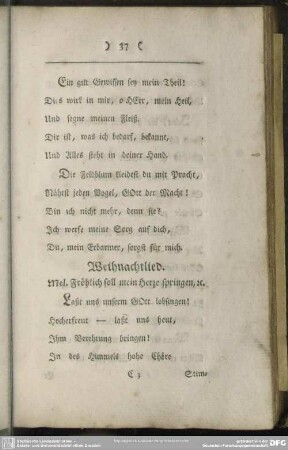 ) 37 (
Ein gut Gewissen sey mein Theil!
Dies wirk in mir, o HErr, mein Heil,
Und segne meinen Fleiß.
Dir ist, was ich bedarf, bekannt,
Und Alles steht in deiner Hand.
Die Feldblum kleidest du mit Pracht,
Nährst jeden Vogel, GOtt der Macht!
Bin ich nicht mehr, denn sie?
Ich werfe meine Sorg auf dich,
Du, mein Erbarmer, sorgst für mich.
Weihnachtlied.
Mel. Fröhlich soll mein Herze springen, ꝛc.
Laßt uns unserm GOtt lobsingen!
Hocherfreut — laßt uns heut,
Ihm Verehrung bringen!
In des Himmels hohe Chöre
C 3 Stim-